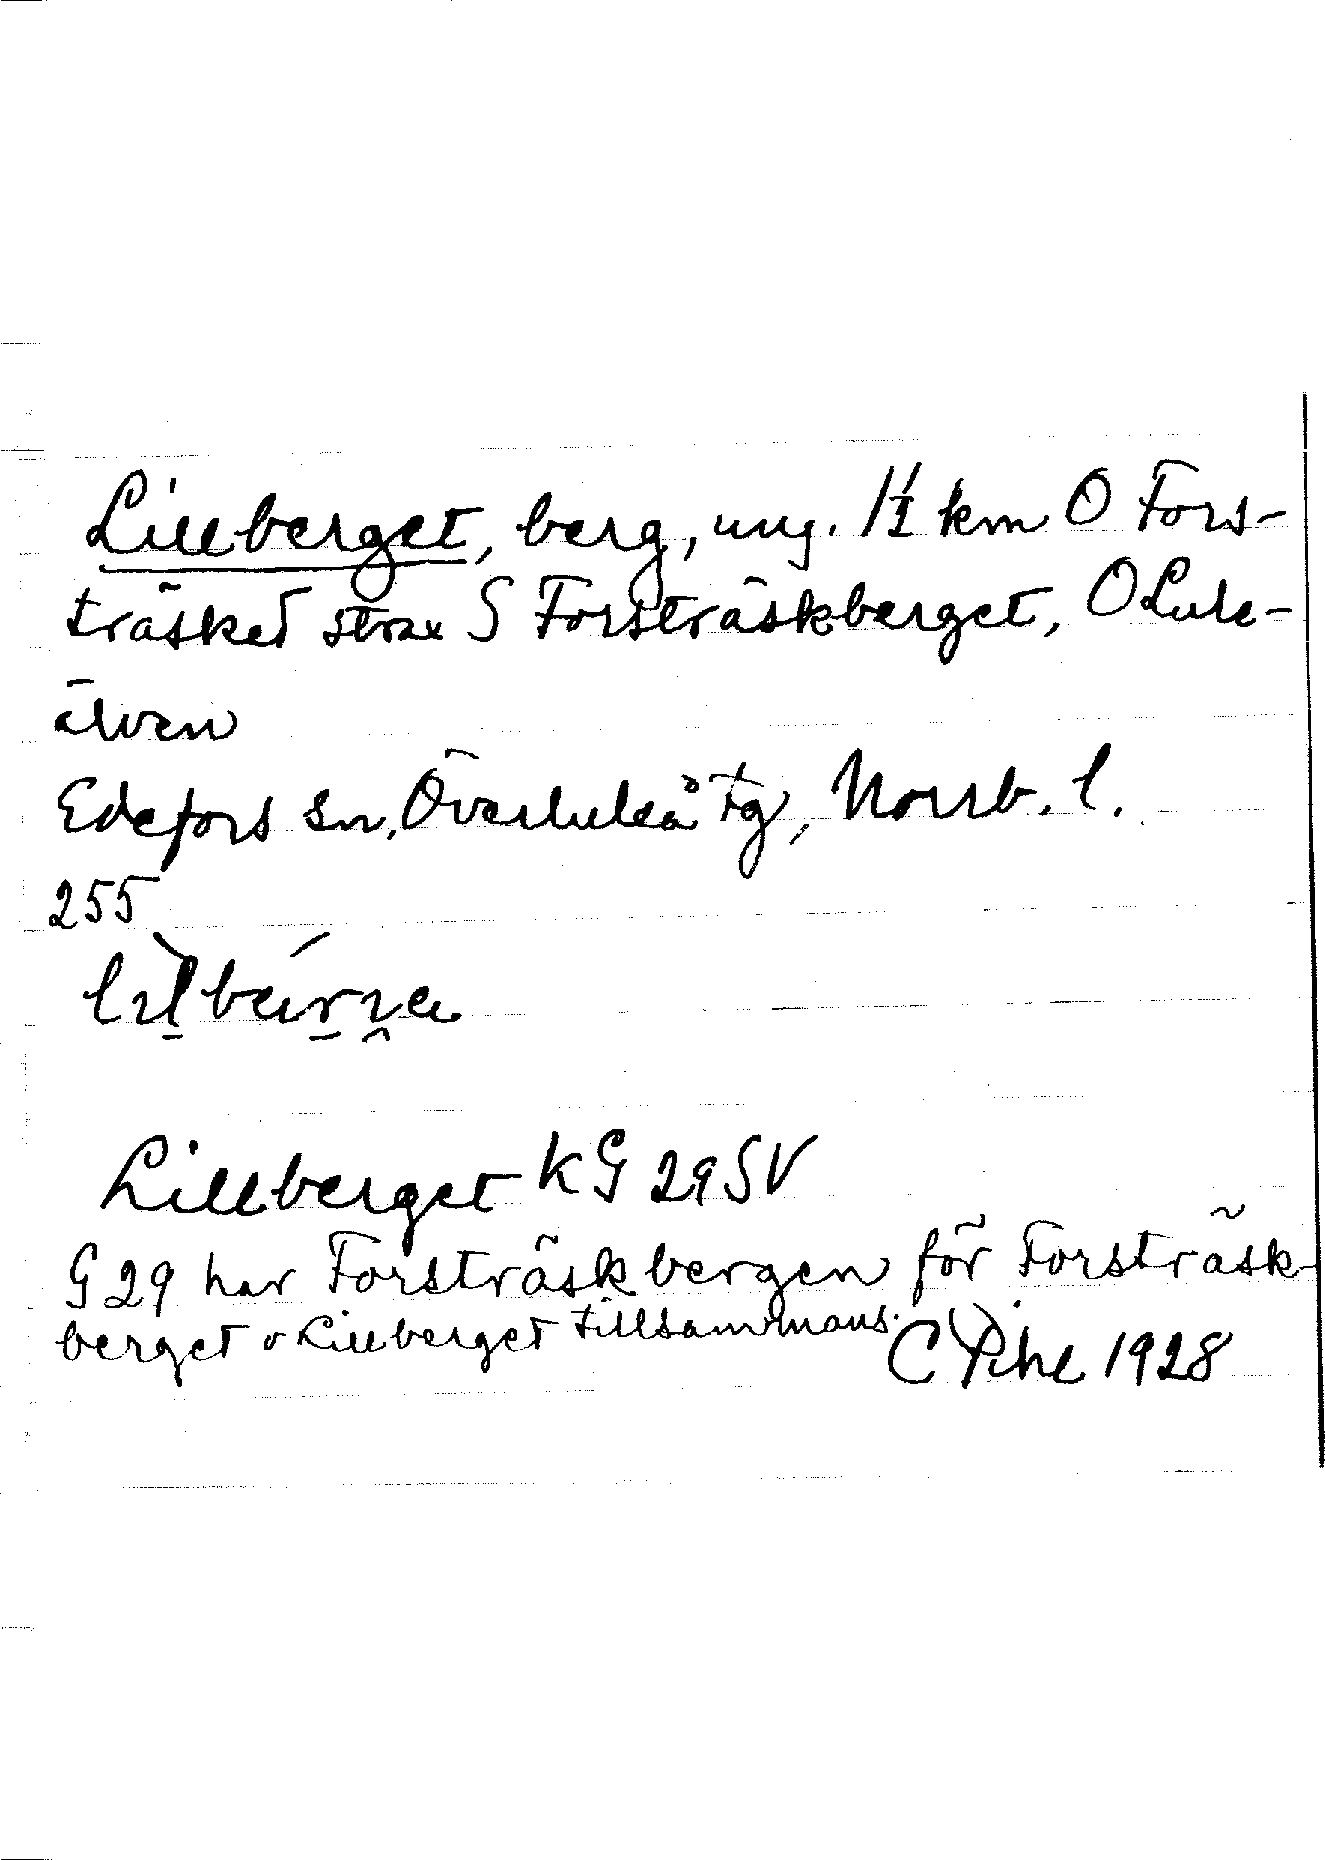 Lillberget, berg, ung. 1½ km O Fors-
träsket strax S Forsträskberget, O Lule-
älven
Edefors sn, Överluleå tg, Norrb. l.
255
Lillberget KG 29 SV
G 29 har Forsträskbergen för Forsträsk-
berget o Lillberget tillsammans.
C Pihl 1928